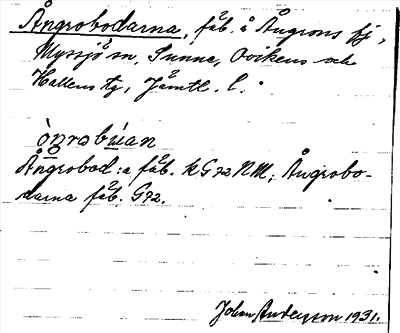 Ångrobodarna, fäb. å Ångrons fj,
Myssjö sn, Sunne, Ovikens och
Hallens tg, Jämtl. l.
òŋrobúan
Ångrobod:a fäb. k G92 NM; Ångrobo-
darna fäb. G92.
John Andersson 1931.